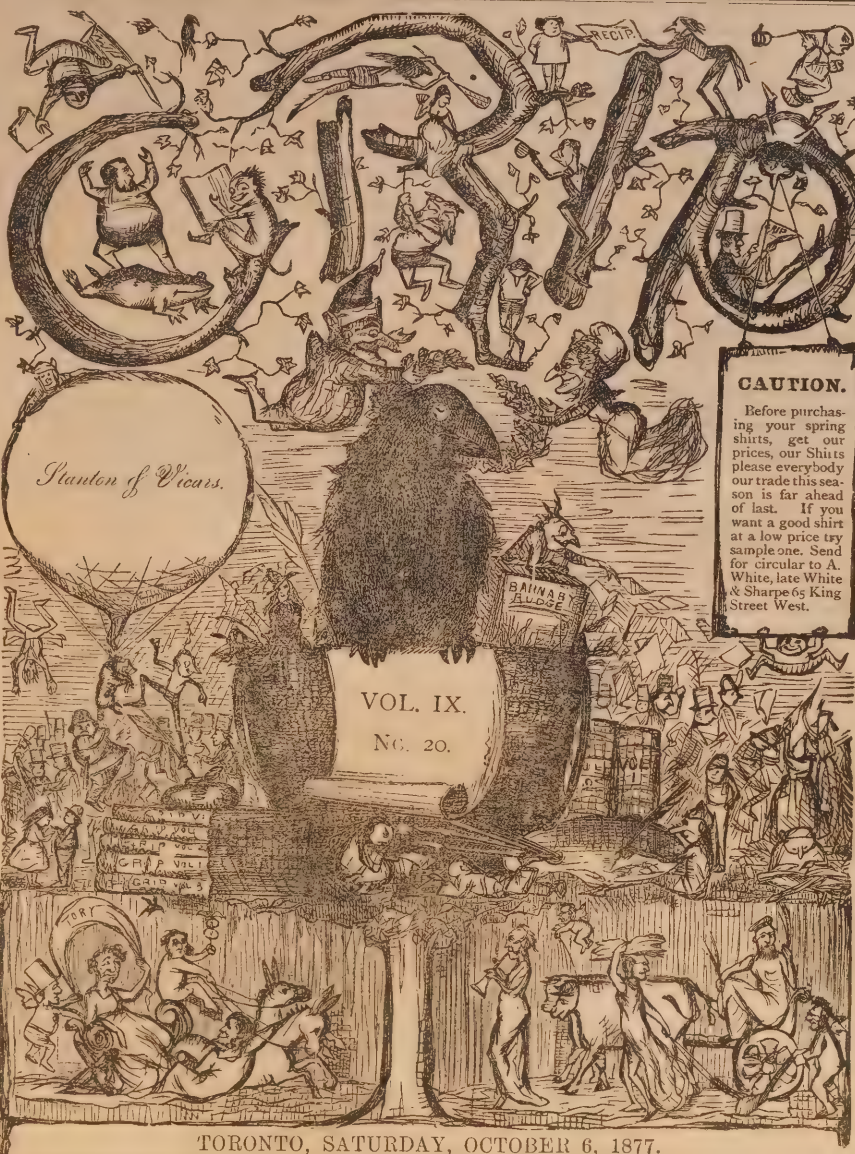 GRIP
RECIP.
Stanton & Vicars.
CAUTION.
Before purchas-
ing your spring
shirts, get our
prices, our Shirts
please everybody
our trade this sea-
son is far ahead
of last. If you
want a good shirt
at a low price try
sample one. Send
for circular to A.
White, late White
& Sharpe 65 King
Street West.
BARNABY
RUDGE
VOL. IX.
NO. 20.
VOL
GRIP VOL
GRIP VOL 1
GRIP VOL 3
TORY
TORONTO, SATURDAY, OCTOBER 6, 1877.